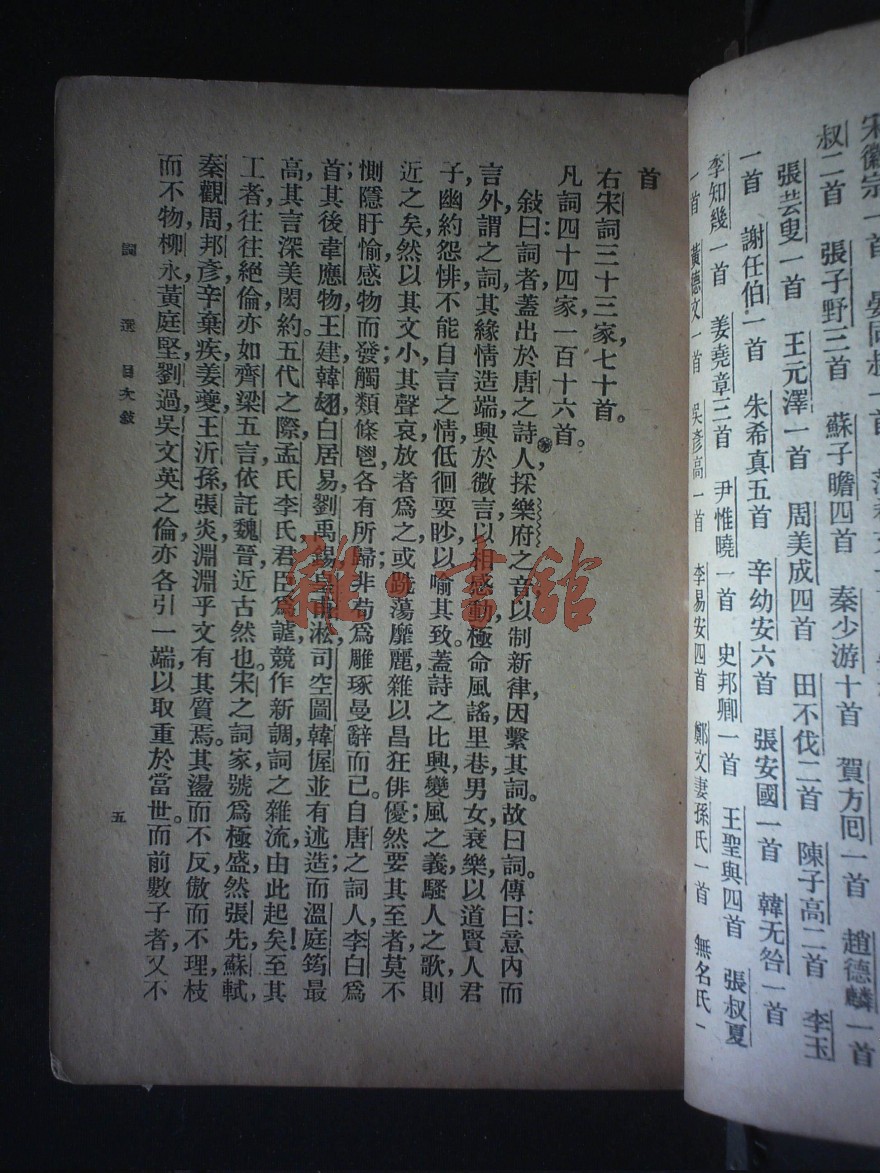 宋徽宗一首　晏同叔一首
叔二首　張子野三首　蘇子瞻四首　秦少游十首　賀方回一首　趙德麟一首
張芸叟一首　王元澤一首　周美成四首　田不伐二首　陳子高二首　李玉
一首　謝任伯一首　朱希真五首　辛幼安六首　張安國一首　韓无咎一首
李知幾一首　姜堯章三首　尹惟曉一首　史邦卿一首　王聖與四首　張叔夏
一首　黃德文一首　吳彥高一首　李易安四首　鄭文妻孫氏一首　無名氏一
首
右宋詞三十三家，七十首。
凡詞四十四家一百十六首。
敍曰：詞者，蓋出於唐之詩人，採樂府之音，以制新律，因繫其詞。故曰詞。傳曰：意內而
言外謂之詞，其緣情造端，興於微言，以相感動，極命風謠里巷男女哀樂，以道賢人君
子幽約怨悱不能自言之情，低徊要眇，以喻其致。蓋詩之比興，變風之義，騷人之歌，則
近之矣，然以其文小，其聲哀，放者爲之，或跌蕩靡麗，雜以昌狂俳優；然要其至者，莫不
惻隱盱愉，感物而發；觸類條鬯，各有所歸，非苟爲雕琢曼辭而已。自唐之詞人，李白爲
首；其後韋應物王建韓翃白居易劉禹錫皇甫淞司空圖韓偓並有述造；而溫庭筠最
高，其言深美閎約。五代之際，孟氏李氏，君臣爲謔，競作新調，詞之雜流，由此起矣！至其
工者，往往絕倫，亦如齊梁五言，依託魏晉，近古然也。宋之詞家，號爲極盛，然張先蘇軾，
秦觀周邦彥辛棄疾姜夔王沂孫張炎，淵淵乎文有其質焉。其盪而不反，傲而不理，枝
而不物，柳永黃庭堅劉過吳文英之倫，亦各引一端，以取重於當世。而前數子者，又不
詞選目次敍
五
雜·書館